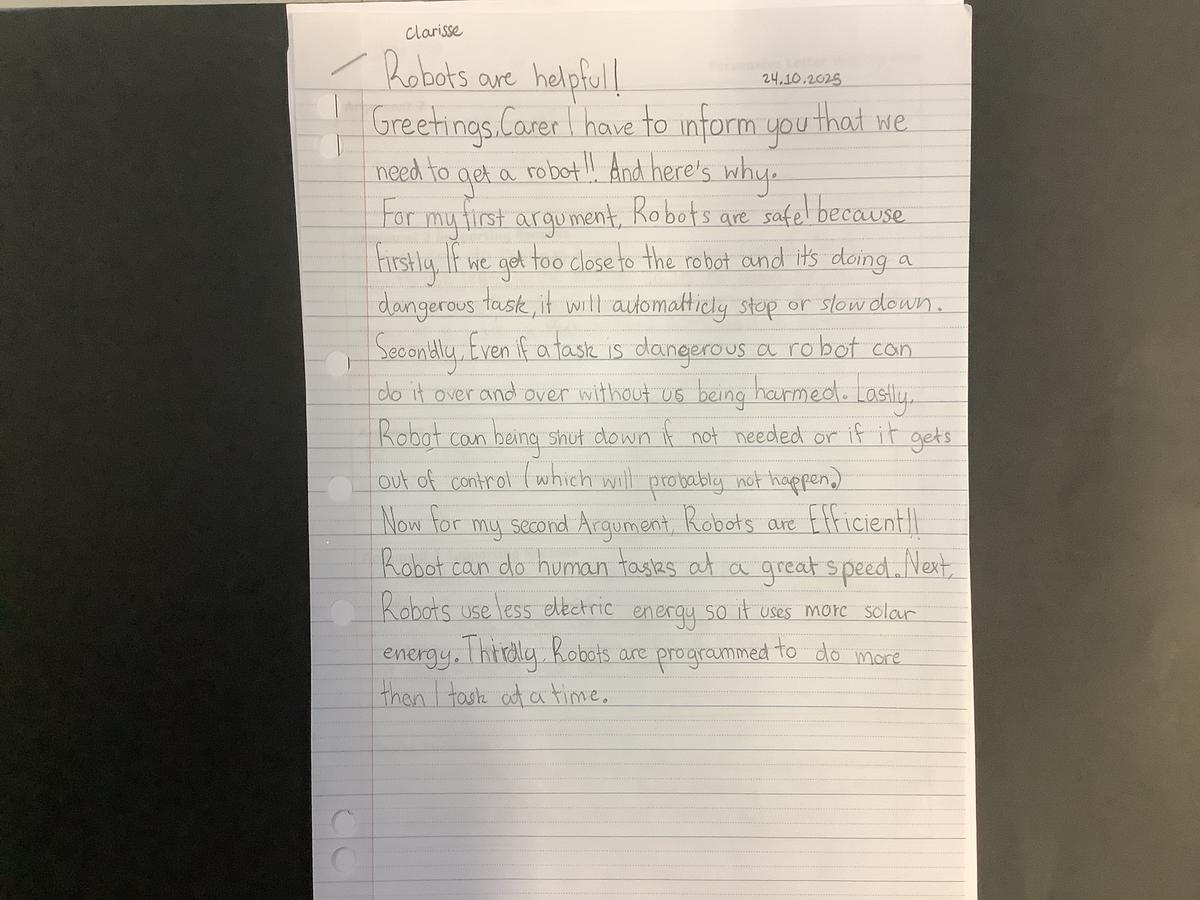 Clarisse
Robots are helpful!
24.10.2025
Greetings, Carer I have to inform you that we
need to get a robot!! And here's why.
For my first argument, Robots are safe! because
Firstly, If we get too close to the robot and it's doing a
dangerous task, it will automatticly stop or slow down.
Secondly, Even if a task is dangerous a robot can
do it over and over without us being harmed. Lastly,
Robot can being shut down if not needed or if it gets
out of control (which will probably not happen.)
Now for my second Argument, Robots are Efficient!!
Robot can do human tasks at a great speed. Next,
Robots use less electric energy so it uses more solar
energy. Thirdly, Robots are programmed to do more
then 1 task at a time.